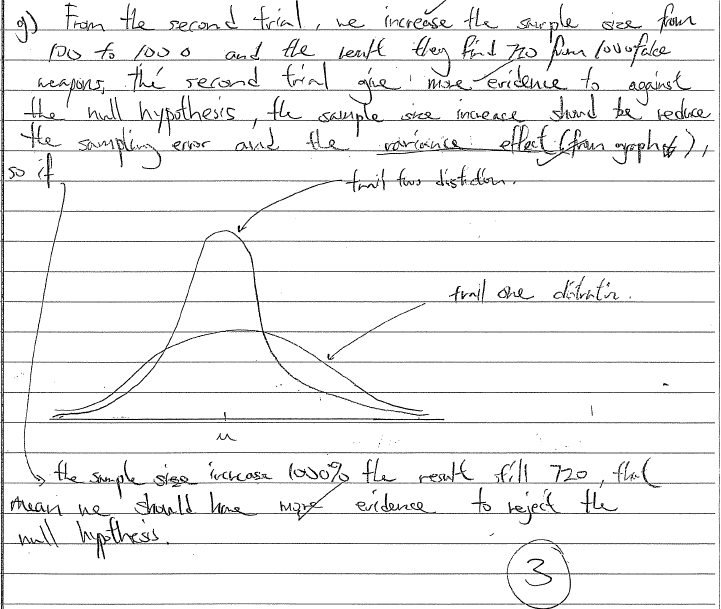 g) From the second trial, we increase the sample size from
100 to 1000 and the result they find 720 from 1000 fake
weapons, the second trial give more evidence to against
the null hypothesis, the sample size increase should be reduce
the sampling error and the variance effect (from graph),
so if
trail two distribution.
trail one distribution.
μ
the sample size increase 1000% the result still 720, that
mean we should have more evidence to reject the
null hypothesis.
3